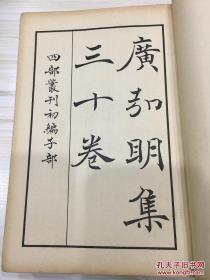 廣弘明集
三十卷
四部叢刊初編子部